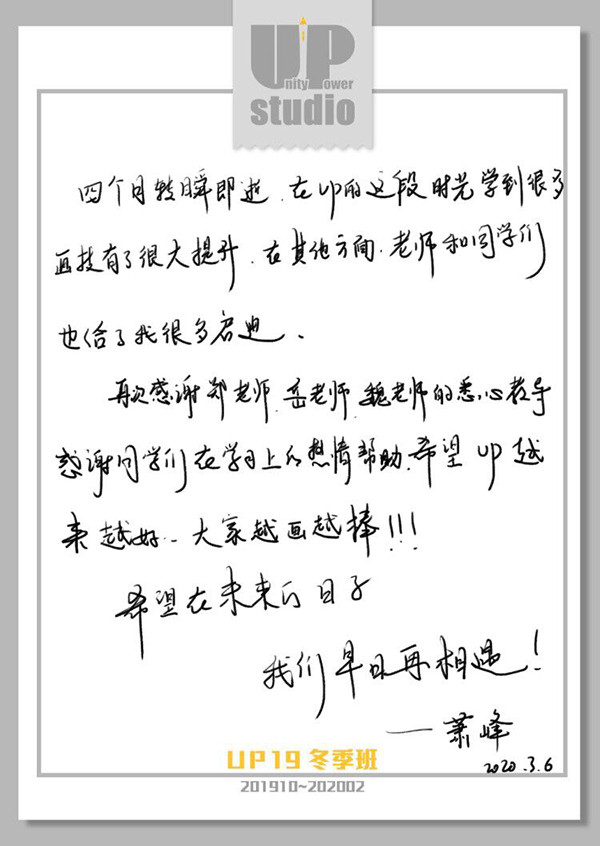 UP
Unity Power
studio
四个月转瞬即逝.在up的这段时光学到很多
画技有了很大提升.在其他方面.老师和同学们
也给了我很多启迪、
再次感谢郑老师.岳老师.魏老师的悉心教导
感谢同学们在学习上的热情帮助.希望up越
来越好..大家越画越棒!!!
希望在未来的日子
我们早日再相遇!
——萧峰
2020.3.6
UP19 冬季班
201910~202002